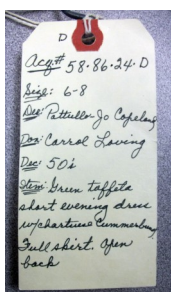 D
Acq# 58.86.24.D
Size: 6-8
Des: Pattullo-Jo Copeland
Don: Carrol Loving
Dec: 50's
Item: Green taffeta
short evening dress
w/chartuese Cummerbund,
Full skirt. Open
back